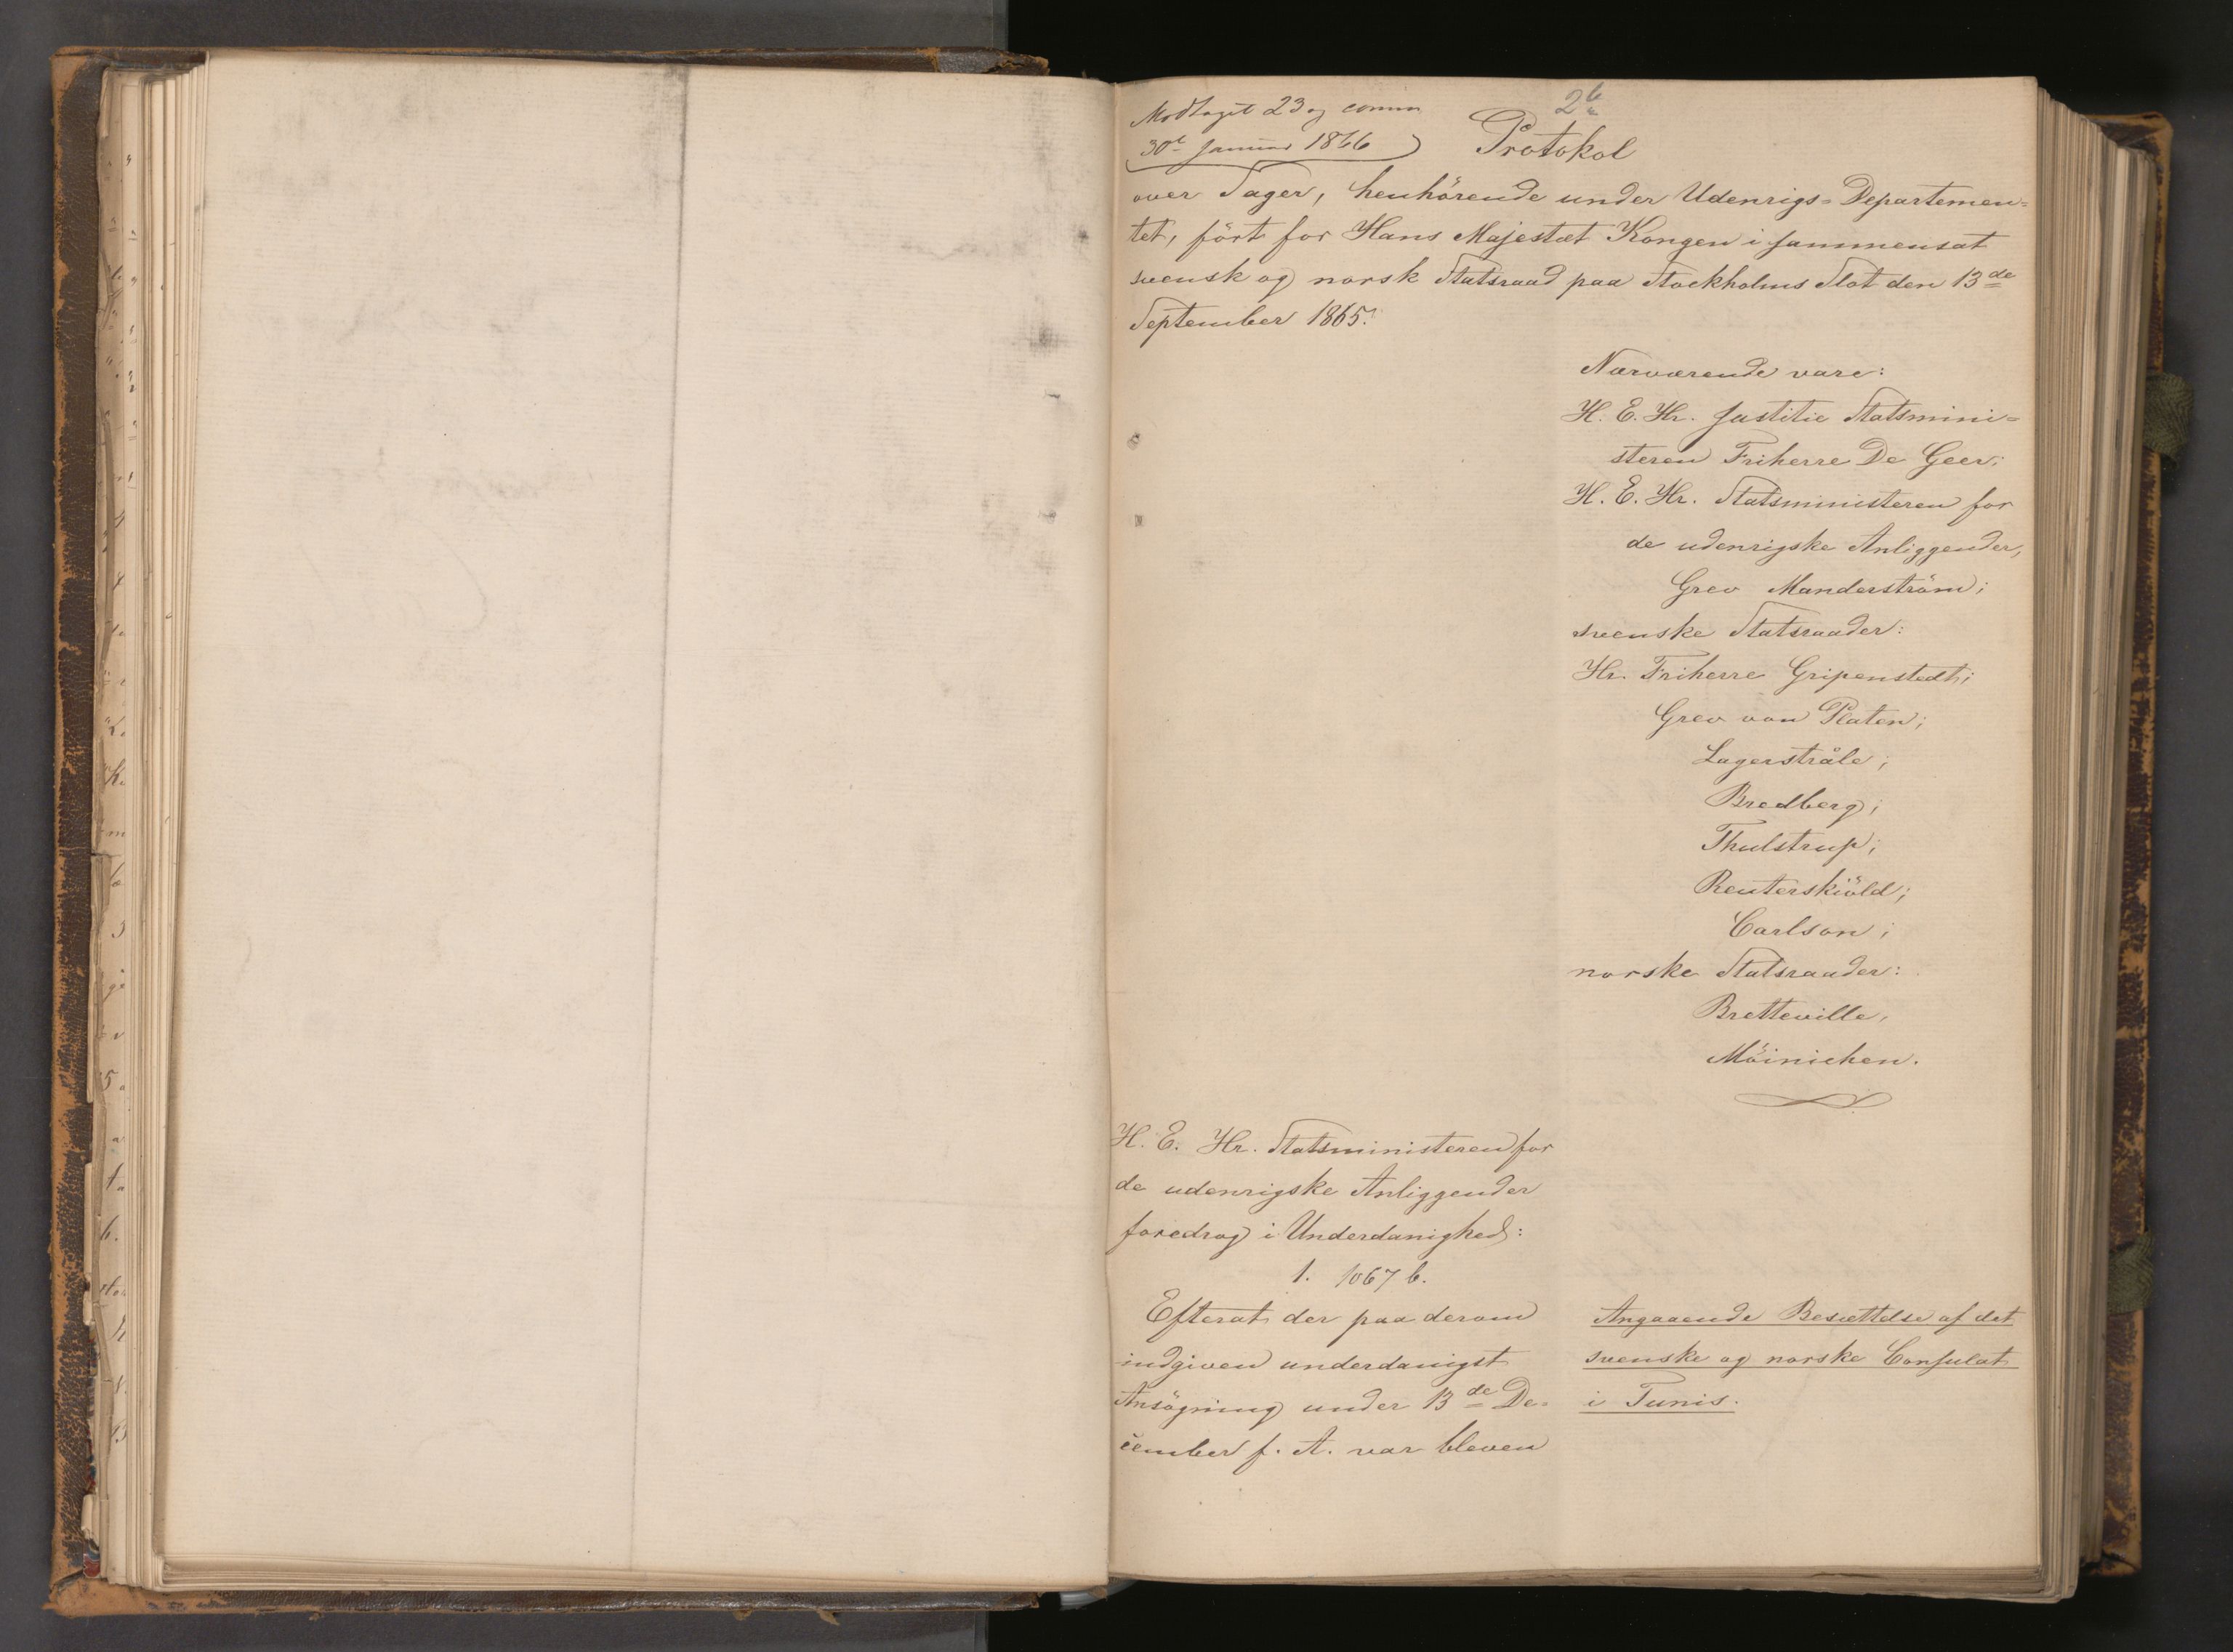 Modtaget 23 og comm
30te Januar 1866
Protokol
over Sager, henhörende under Udenrigs=Departemen=
tet, fört for Hans Majestæt Kongen i sammensat
svensk og norsk Statsraad paa Stockholms Slot den 13de
September 1865.
Nærværende vare:
H. E. Hr. Justitie Statsmini=
steren Friherre De Geer;
H. E. Hr. Statsministeren for
de udenrigske Anliggender,
Grev Manderström;
svenske Statsraader:
Hr. Friherre Gripenstedt;
Grev von Platen;
Lagerstråle;
Bredberg;
Thulstrup;
Reuterskiöld;
Carlson;
norske Statsraader:
Bretteville,
Möinichen.
H. E. Hr. Statsministeren for
de udenrigske Anliggender
foredrog i Underdanighed:
1. 1067 b.
Efterat der paa derom
indgiven underdanigst
Ansögning under 13de De=
cember f. A. var bleven
Angaaende Besættelse af det
svenske og norske Consulat
i Tunis.